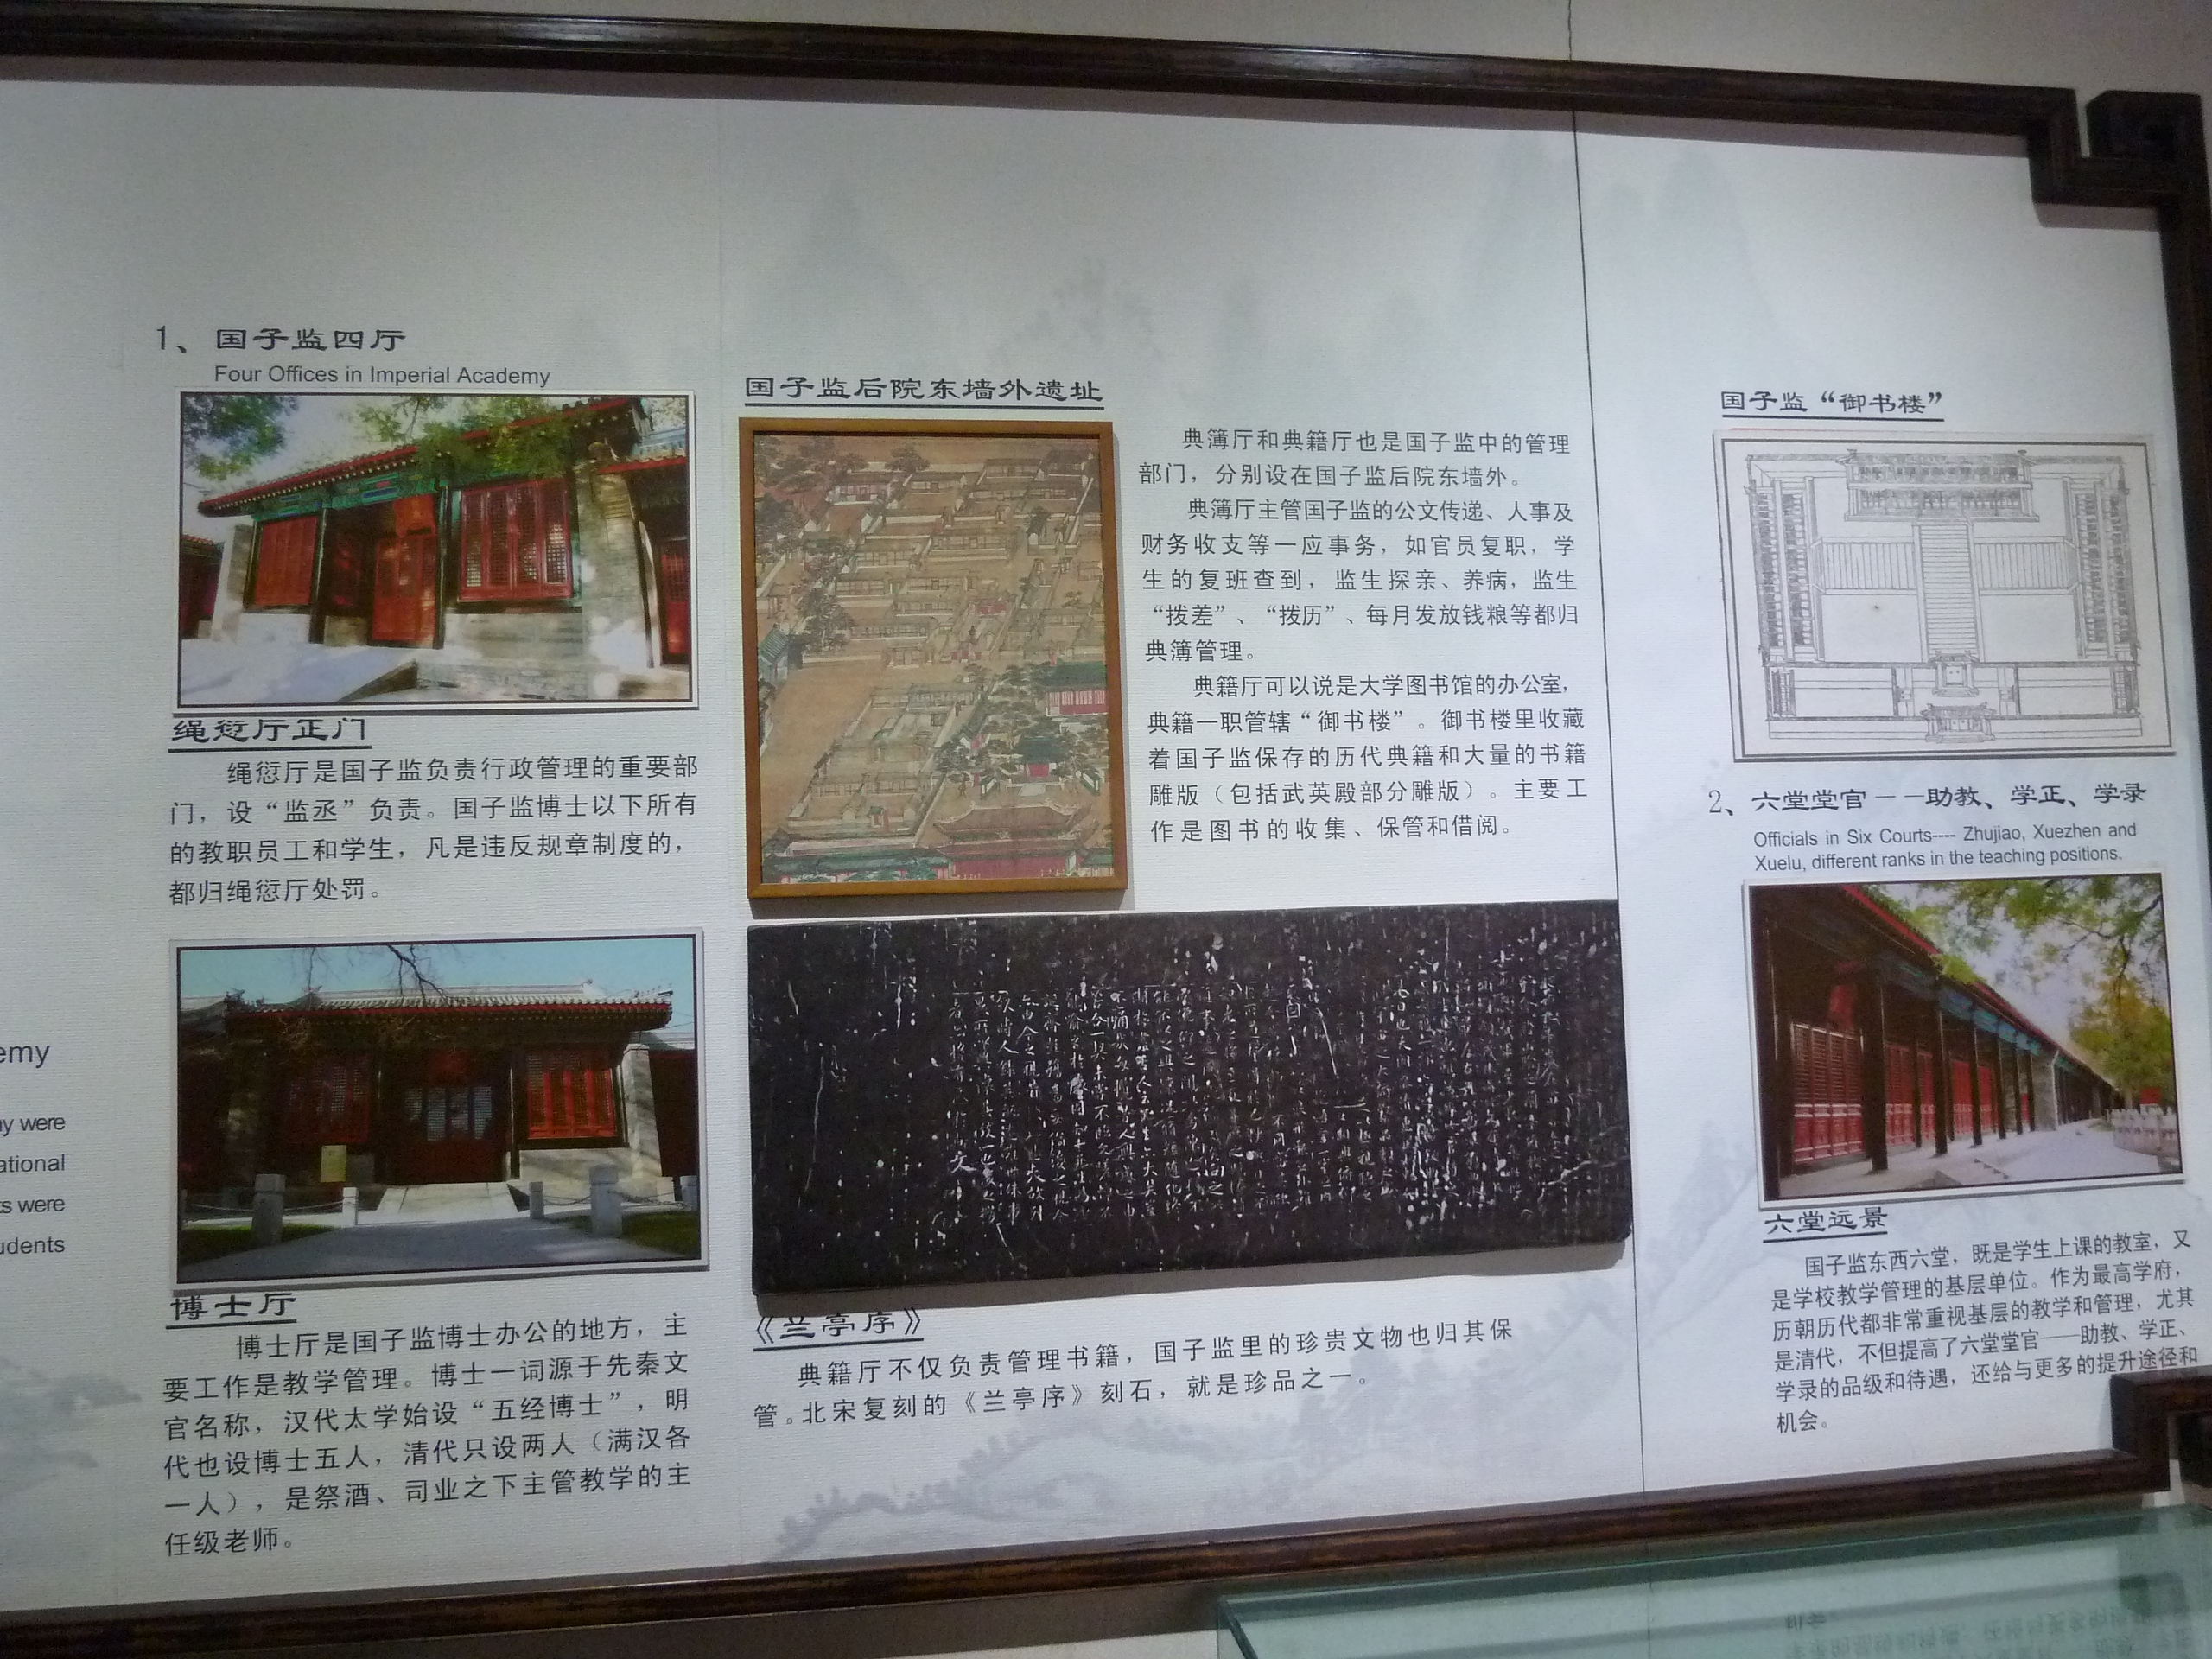 emy
y were
ational
ts were
udents
1、国子监四厅
Four Offices in Imperial Academy
绳愆厅正门
绳愆厅是国子监负责行政管理的重要部
门，设“监丞”负责。国子监博士以下所有
的教职员工和学生，凡是违反规章制度的，
都归绳愆厅处罚。
博士厅
博士厅是国子监博士办公的地方，主
要工作是教学管理。博士一词源于先秦文
官名称，汉代太学始设“五经博士”，明
代也设博士五人，清代只设两人（满汉各
一人），是祭酒、司业之下主管教学的主
任级老师。
国子监后院东墙外遗址
典簿厅和典籍厅也是国子监中的管理
部门，分别设在国子监后院东墙外。
典簿厅主管国子监的公文传递、人事及
财务收支等一应事务，如官员复职，学
生的复班查到，监生探亲、养病，监生
“拨差”、“拨历”、每月发放钱粮等都归
典簿管理。
典籍厅可以说是大学图书馆的办公室，
典籍一职管辖“御书楼”。御书楼里收藏
着国子监保存的历代典籍和大量的书籍
雕版（包括武英殿部分雕版）。主要工
作是图书的收集、保管和借阅。
《兰亭序》
典籍厅不仅负责管理书籍，国子监里的珍贵文物也归其保
管。北宋复刻的《兰亭序》刻石，就是珍品之一。
国子监“御书楼”
2、六堂堂官——助教、学正、学录
Officials in Six Courts---- Zhujiao, Xuezhen and
Xuelu, different ranks in the teaching positions.
六堂远景
国子监东西六堂，既是学生上课的教室，又
是学校教学管理的基层单位。作为最高学府，
历朝历代都非常重视基层的教学和管理，尤其
是清代，不但提高了六堂堂官——助教、学正、
学录的品级和待遇，还给与更多的提升途径和
机会。